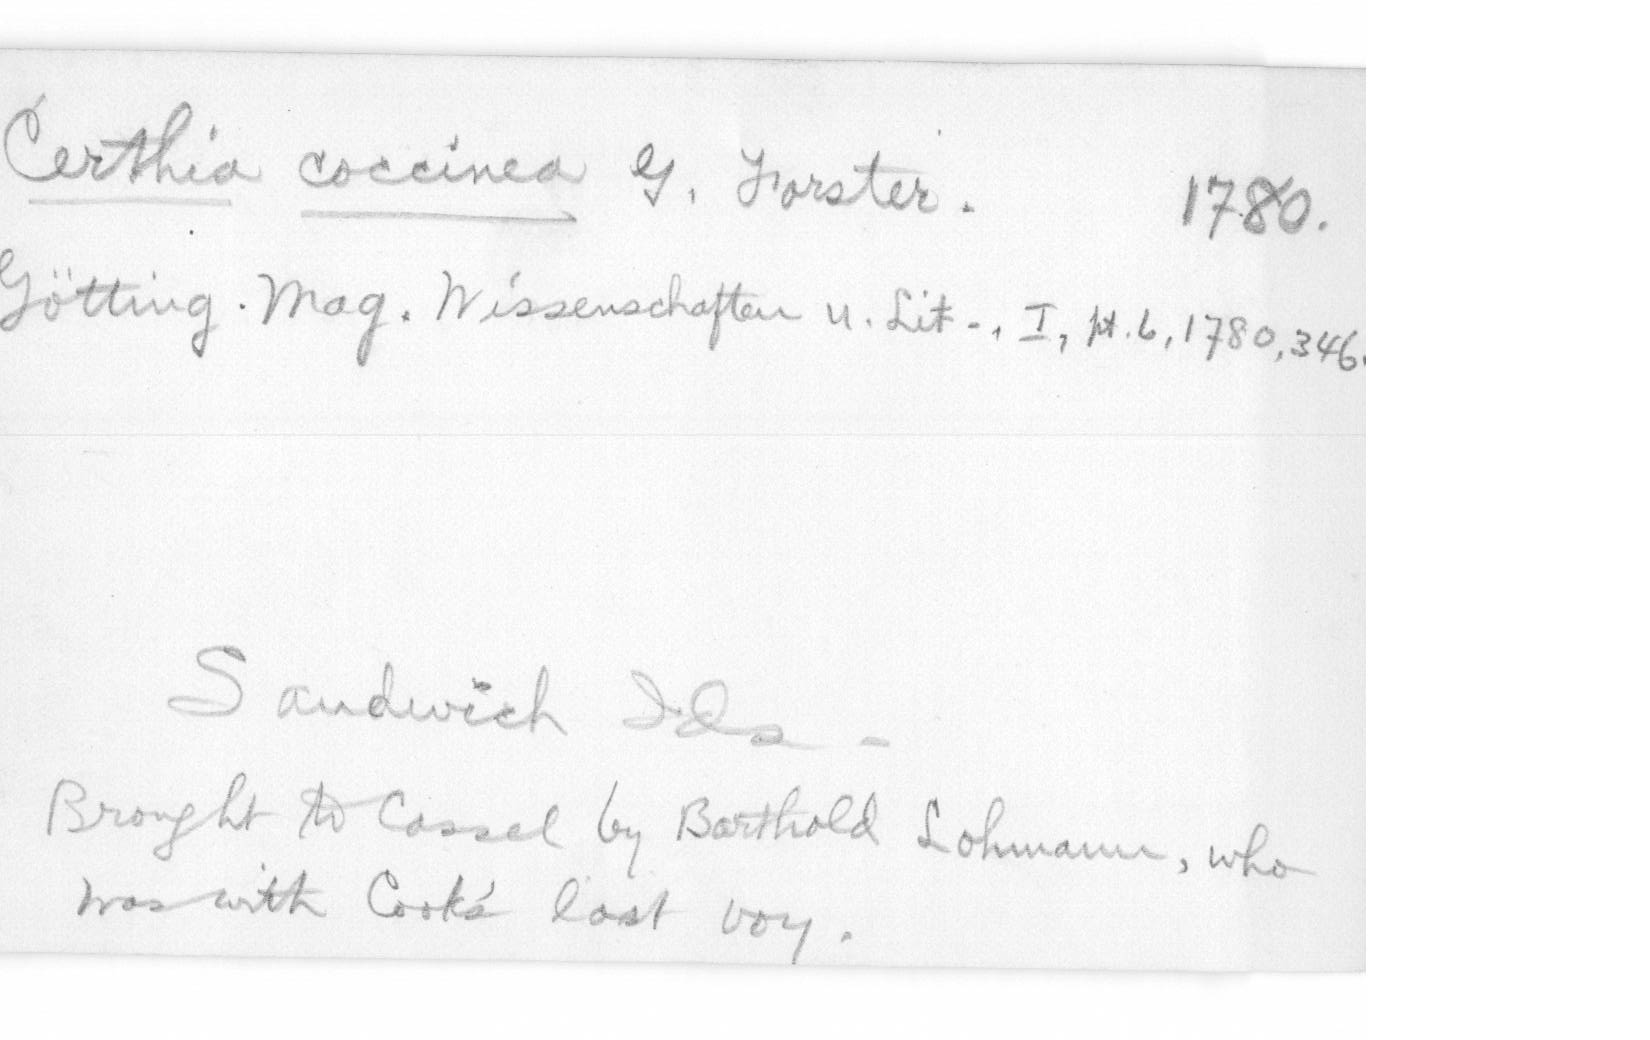 Certhia coccinea G. Forster. 1780.
Götting. Mag. Wissenschaften u. Lit-., I, pt. 6, 1780, 346.
Sandwich Ids -
Brought to Cassel by Barthold Lohmann, who
was with Cook's last voy.